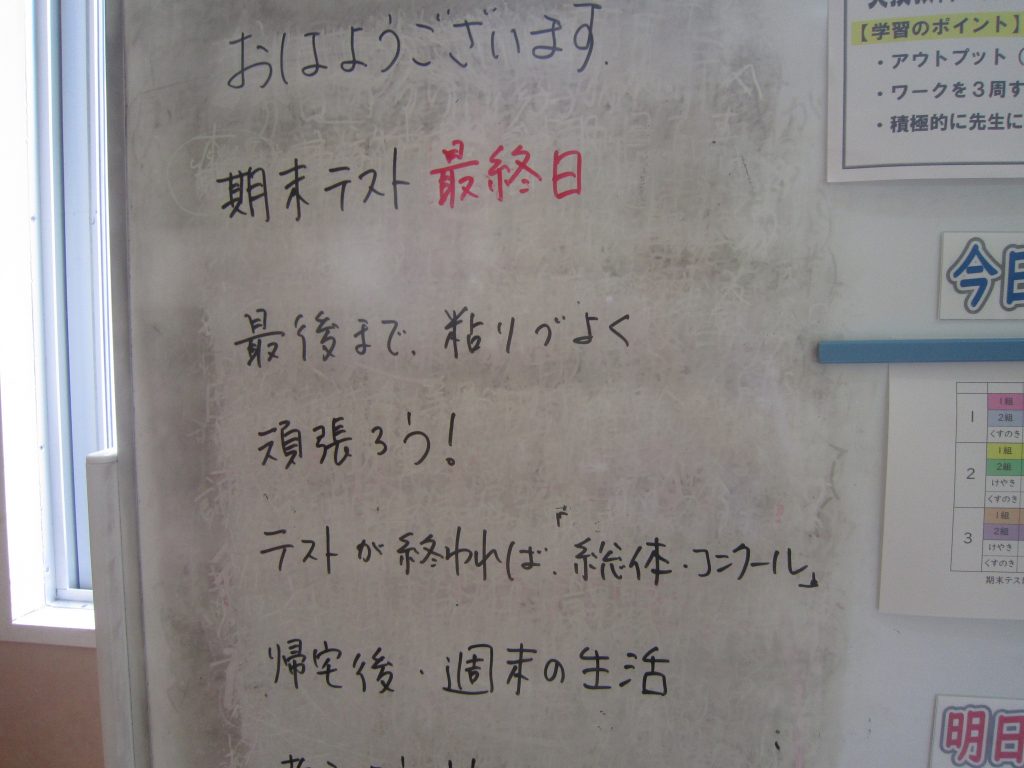 おはようございます.
期末テスト 最終日
最後まで、粘りづよく
頑張ろう!
テストが終われば、「総体・コンクール」
帰宅後・週末の生活
【学習のポイント】
・アウトプット(
・ワークを3周す
・積極的に先生に
今日
1
1組
2組
くすのき
2
1組
2組
けやき
くすのき
3
1組
2組
けやき
くすのき
期末テス
明日